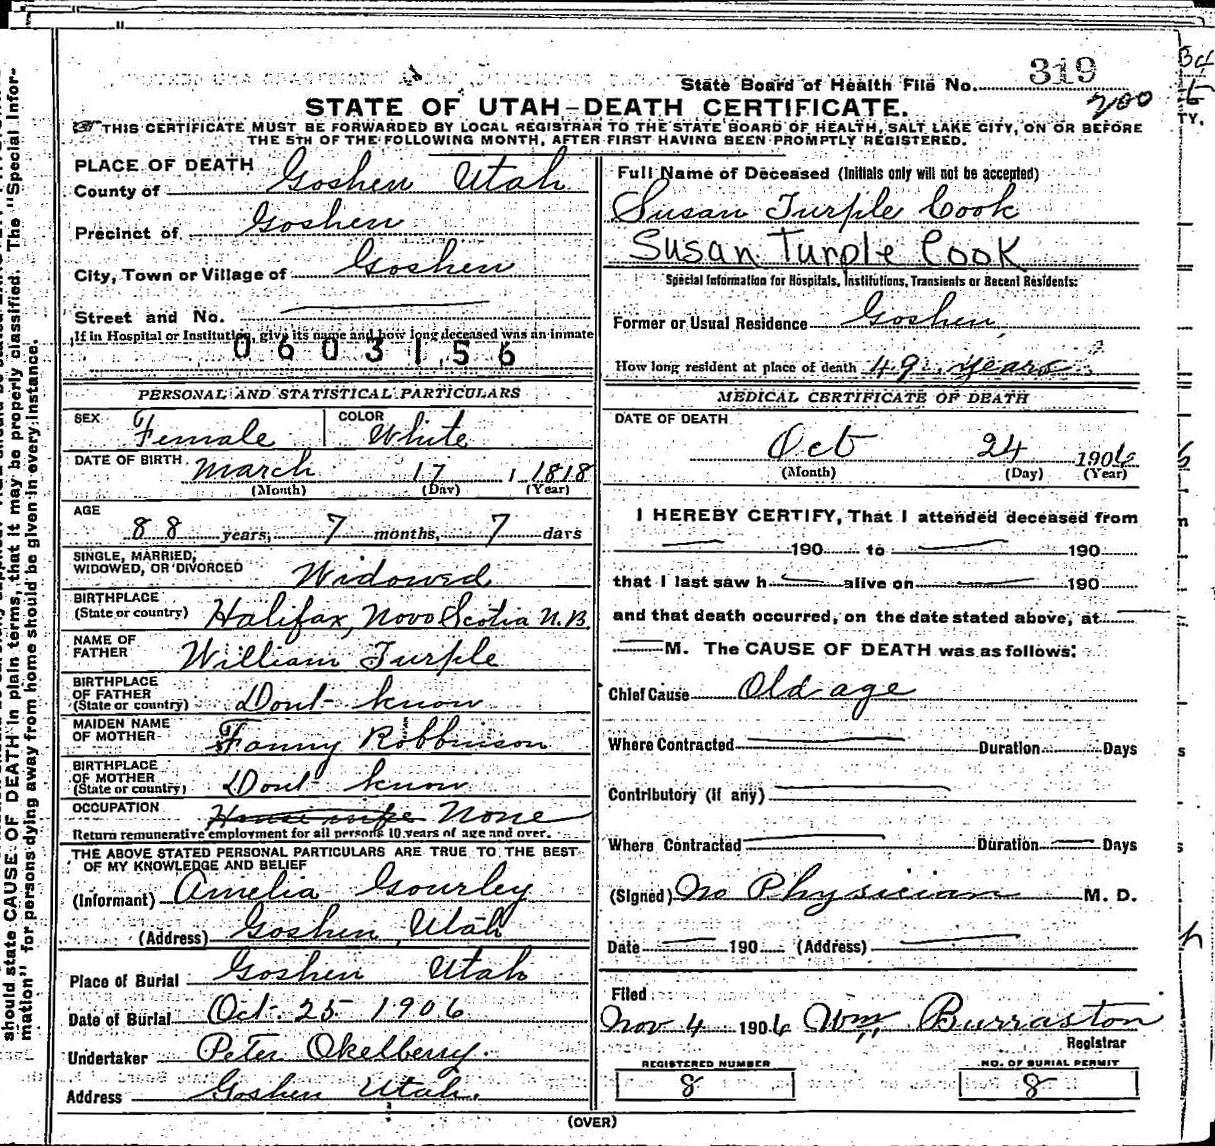 State Board of Health File No. 319
200
STATE OF UTAH-DEATH CERTIFICATE.
THIS CERTIFICATE MUST BE FORWARDED BY LOCAL REGISTRAR TO THE STATE BOARD OF HEALTH, SALT LAKE CITY, ON OR BEFORE
THE 5TH OF THE FOLLOWING MONTH, AFTER FIRST HAVING BEEN PROMPTLY REGISTERED.
PLACE OF DEATH
County of Goshen Utah
Precinct of Goshen
City, Town or Village of Goshen
Street and No.
If in Hospital or Institution, give its name and how long deceased was an inmate
0603156
PERSONAL AND STATISTICAL PARTICULARS
SEX Female COLOR White
DATE OF BIRTH March 17 1 1818
(Month) (Day) (Year)
AGE
88 years, 7 months, 7 days
SINGLE, MARRIED,
WIDOWED, OR DIVORCED Widowed
BIRTHPLACE
(State or country) Halifax, Novo Scotia N.B.
NAME OF
FATHER William Turple
BIRTHPLACE
OF FATHER
(State or country) Dont know
MAIDEN NAME
OF MOTHER Fanny Robbinson
BIRTHPLACE
OF MOTHER
(State or country) Dont know
OCCUPATION House wife None
Return remunerative employment for all persons 10 years of age and over.
THE ABOVE STATED PERSONAL PARTICULARS ARE TRUE TO THE BEST
OF MY KNOWLEDGE AND BELIEF
(Informant) Amelia Gourley
(Address) Goshen, Utah
Place of Burial Goshen Utah
Date of Burial Oct. 25 1906
Undertaker Peter Okelberry.
Address Goshen Utah.
Full Name of Deceased (Initials only will not be accepted)
Susan Turple Cook
Susan Turple Cook
Special Information for Hospitals, Institutions, Transients or Recent Residents:
Former or Usual Residence Goshen,
How long resident at place of death 49 years
MEDICAL CERTIFICATE OF DEATH
DATE OF DEATH
Oct 24 1906
(Month) (Day) (Year)
I HEREBY CERTIFY, That I attended deceased from
190 to 190
that I last saw h alive on 190
and that death occurred, on the date stated above, at
M. The CAUSE OF DEATH was as follows:
Chief Cause Old age
Where Contracted Duration Days
Contributory (if any)
Where Contracted Duration Days
(Signed) No Physician M. D.
Date 190 (Address)
Filed
Nov 4 1906 Wm Burraston
Registrar
REGISTERED NUMBER
8
NO. OF BURIAL PERMIT
8
(OVER)
should state CAUSE OF DEATH in plain terms, that it may be properly classified. The "Special Infor-
mation" for persons dying away from home should be given in every instance.